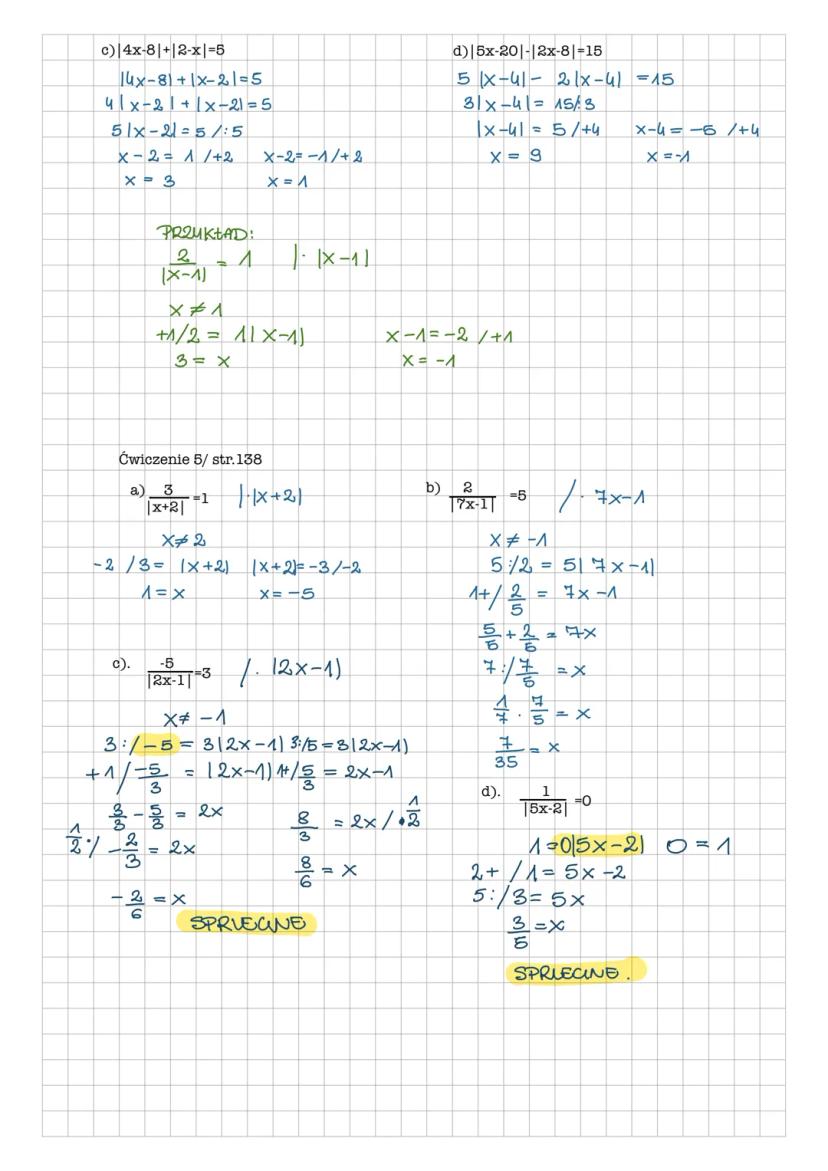 c)|4x-8|+|2-x|=5
|4x-8|+|x-2|=5
4|x-2|+|x-2|=5
5|x-2|=5 /:5
x-2=1 /+2 x-2=-1/+2
x=3 x=1
d)|5x-20|-|2x-8|=15
5|x-4|- 2|x-4| =15
3|x-4|= 15/:3
|x-4|= 5/+4 x-4=-5 /+4
x = 9 x=-1
PRZYKŁAD:
2/|x-1| = 1 |· |x-1|
x≠1
+1/2 = 1|x-1| x-1=-2 /+1
3=x x=-1
Ćwiczenie 5/ str.138
a) 3/|x+2| =1 |·|x+2|
x≠2
-2 /3= |x+2| |x+2|=-3/-2
1=x x=-5
b) 2/|7x-1| =5 /· 7x-1
x≠-1
5:/2 = 5|7x-1|
1+/ 2/5 = 7x-1
5/5+2/5=7x
7:/7/5 =x
1/7·7/5=x
7/35=x
c). -5/|2x-1|=3 /· |2x-1)
x≠-1
3:/-5=3|2x-1| 3:/5=3|2x-1)
+1/-5/3 = |2x-1) 1+/5/3=2x-1
3/3-5/3=2x 8/3=2x/·1/2
1/2·/-2/3=2x 8/6=x
-2/6=x
SPRZECZNE
d). 1/|5x-2| =0
1=0|5x-2| 0=1
2+ /1=5x-2
5:/3=5x
3/5=x
SPRZECZNE.